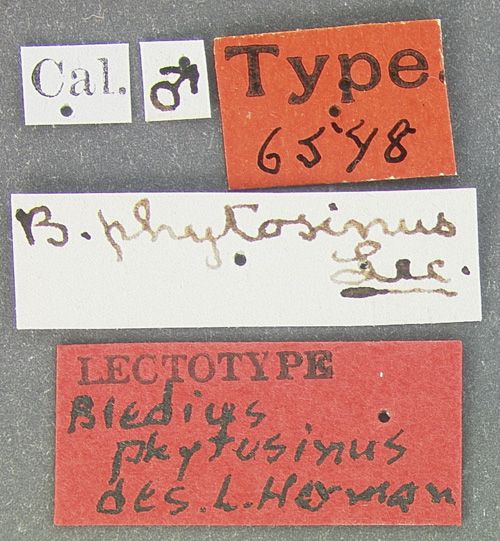 Cal.
♂
Type.
6548
B. phytosinus
Lec.
LECTOTYPE
Bledius
phytosinus
des. L. Herman